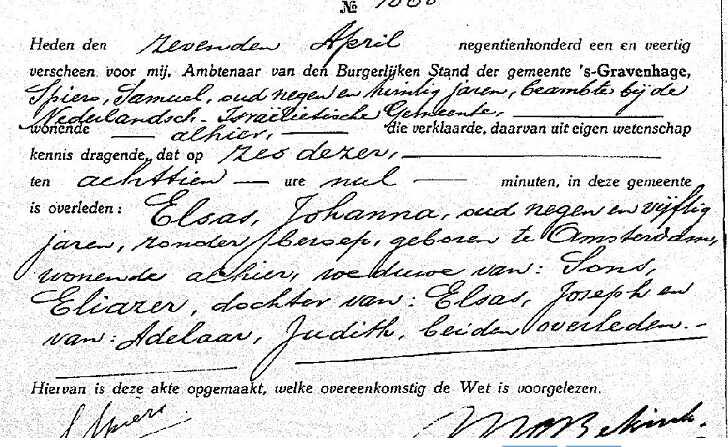 №
Heden den zevenden April negentienhonderd een en veertig
verscheen voor mij, Ambtenaar van den Burgerlijken Stand der gemeente 's-Gravenhage,
Spiero, Samuel, oud negen en twintig jaren, beambte bij de
Nederlandsch-Israelietische Gemeente,
wonende alhier, die verklaarde, daarvan uit eigen wetenschap
kennis dragende, dat op zes dezer,
ten achttien ure nul minuten, in deze gemeente
is overleden: Elsas, Johanna, oud negen en vijftig
jaren, zonder beroep, geboren te Amsterdam,
wonende alhier, weduwe van: Sons,
Eliazer, dochter van: Elsas, Joseph en
van: Adelaar, Judith, beiden overleden.-
Hiervan is deze akte opgemaakt, welke overeenkomstig de Wet is voorgelezen.